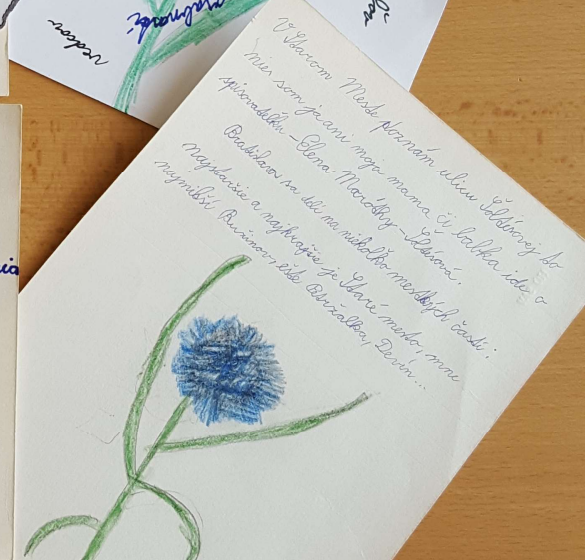 V Starom Meste poznám ulicu Šoltésovej to
nie som ja ani moja mama či babka ide o
spisovateľku - Elena Maróthy - Šoltésová.
Bratislava sa delí na niekoľko mestských častí:
najstaršie a najkrajšie je Staré mesto, mne
najmilší Ružinov, ešte Petržalka, Devín...
vedcov